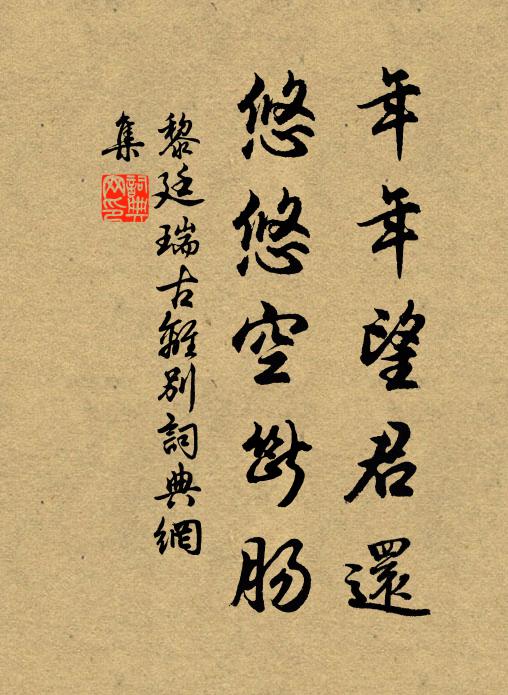 年年望君還
悠悠空斷腸
黎廷瑞古離別詞典網
集
詞典
网印